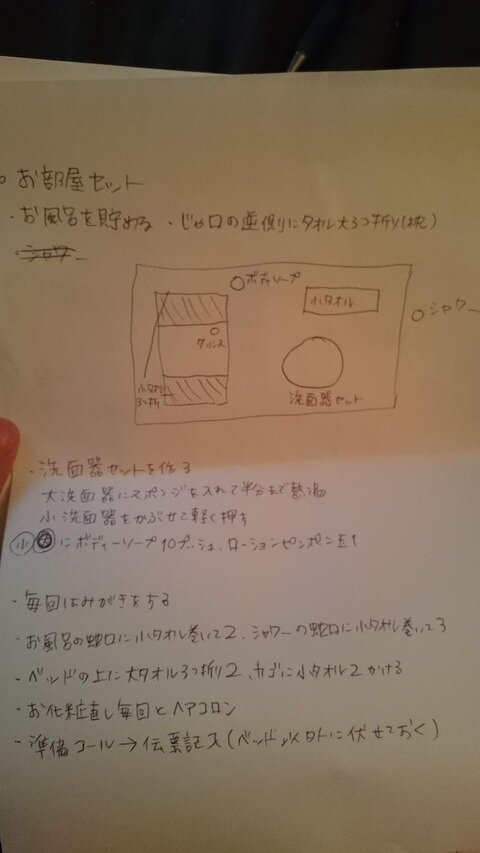 お部屋セット
・お風呂を貯める ・じゃ口の逆側にタオル大3つ折り(枕)
シャワー
ボディソープ
小タオル
シャワー
グリンス
小タオル
3つ折
洗面器セット
・洗面器セットを作る
大洗面器にスポンジを入れて半分まで熱湯
小洗面器をかぶせて軽く押す
小 にボディーソープ10プッシュ、ローション
・毎回はみがきをする
・お風呂の蛇口に小タオル巻いて2、シャワーの蛇口に小タオル巻いて3
・ベッドの上に大タオル3つ折り2、カゴに小タオル2かける
・お化粧直し毎回とヘアコロン
・準備コール→伝票記入(ベッド以外に伏せておく)